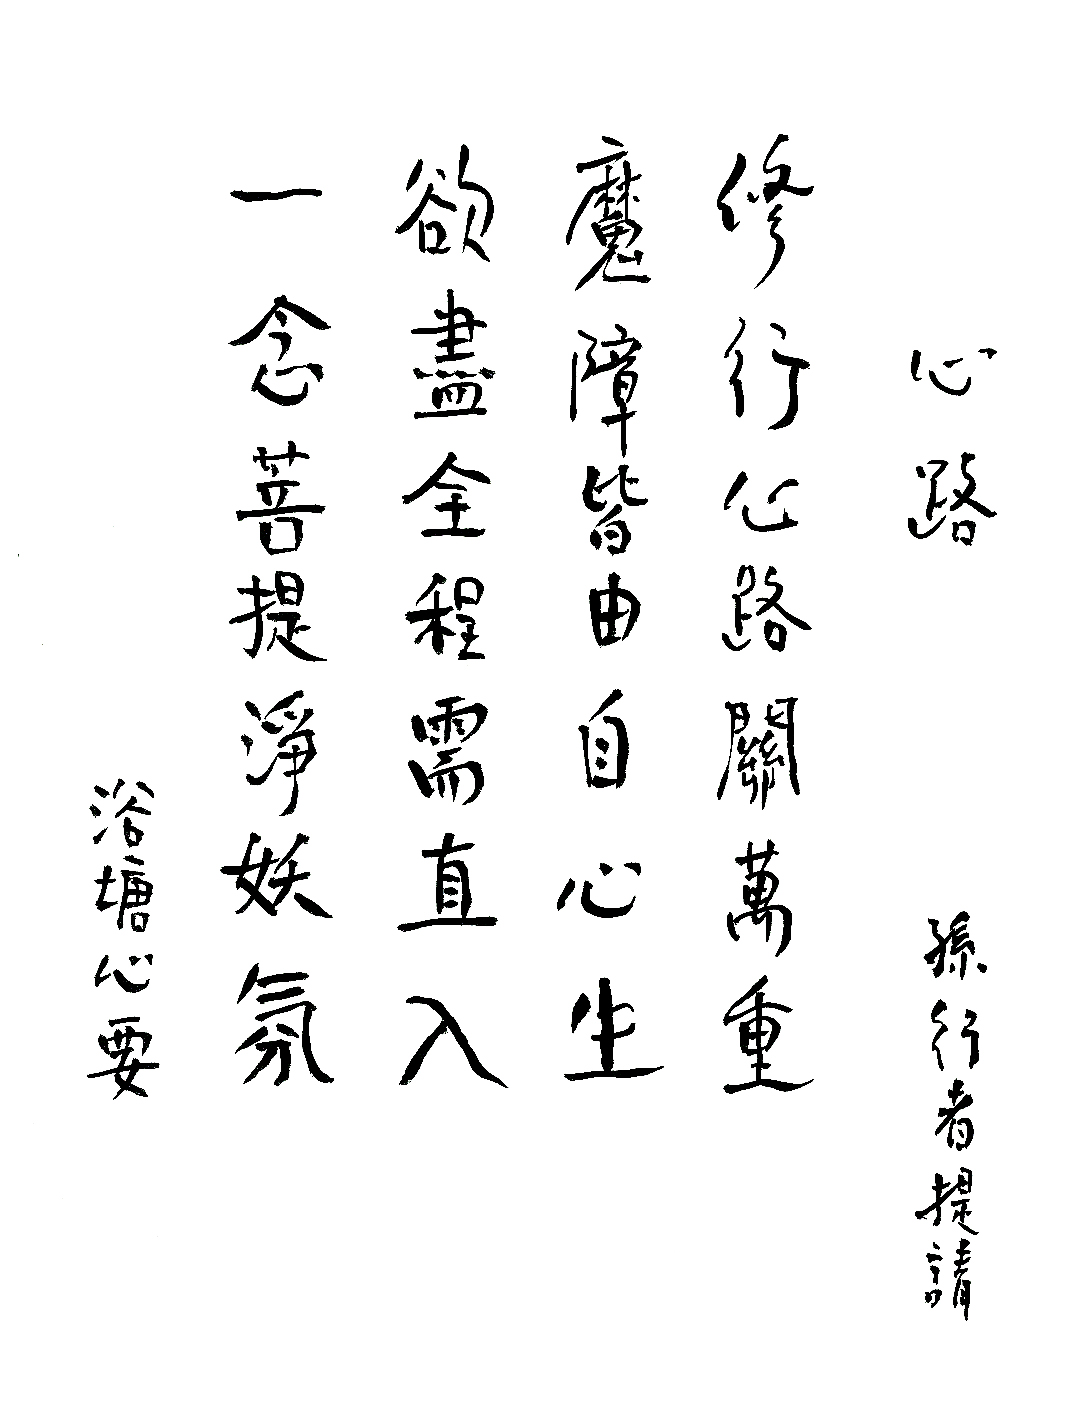 心路
孫行者提請
修行心路關萬重
魔障皆由自心生
欲盡全程需直入
一念菩提淨妖氛
浴塘心要